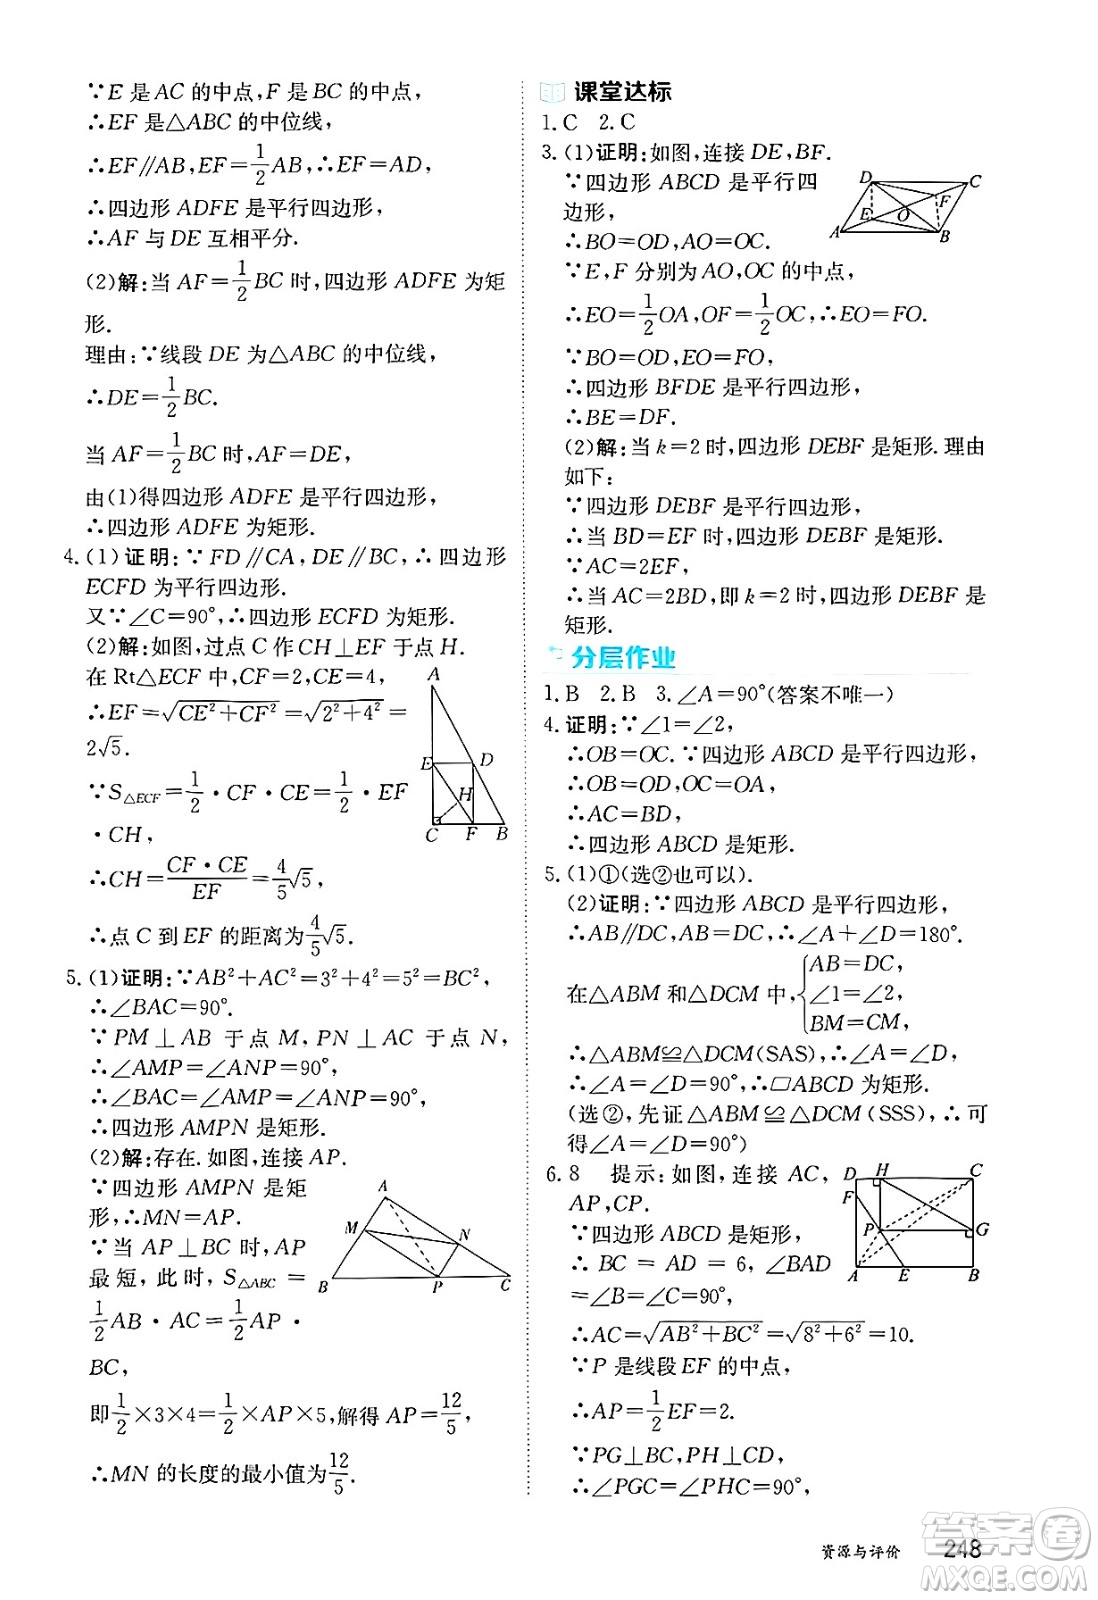 ∵E 是 AC 的中点,F 是 BC 的中点,
∴EF 是△ABC 的中位线,
∴EF∥AB,EF=1/2AB,∴EF=AD,
∴四边形 ADFE 是平行四边形,
∴AF 与 DE 互相平分.
(2)解:当 AF=1/2BC 时,四边形 ADFE 为矩
形.
理由:∵线段 DE 为△ABC 的中位线,
∴DE=1/2BC.
当 AF=1/2BC 时,AF=DE,
由(1)得四边形 ADFE 是平行四边形,
∴四边形 ADFE 为矩形.
4.(1)证明:∵FD∥CA,DE∥BC,∴四边形
ECFD 为平行四边形.
又∵∠C=90°,∴四边形 ECFD 为矩形.
(2)解:如图,过点 C 作 CH⊥EF 于点 H.
在 Rt△ECF 中,CF=2,CE=4,
∴EF=√(CE²+CF²)=√(2²+4²)=
2√5.
∵S△ECF=1/2·CF·CE=1/2·EF
·CH,
∴CH=(CF·CE)/EF=4/5√5,
∴点 C 到 EF 的距离为4/5√5.
A
E
D
H
C
F
B
5.(1)证明:∵AB²+AC²=3²+4²=5²=BC²,
∴∠BAC=90°.
∵PM⊥AB 于点 M,PN⊥AC 于点 N,
∴∠AMP=∠ANP=90°,
∴∠BAC=∠AMP=∠ANP=90°,
∴四边形 AMPN 是矩形.
(2)解:存在.如图,连接 AP.
∵四边形 AMPN 是矩
形,∴MN=AP.
∵当 AP⊥BC 时,AP
最短,此时,S△ABC=
1/2AB·AC=1/2AP·
BC,
即1/2×3×4=1/2×AP×5,解得 AP=12/5,
∴MN 的长度的最小值为12/5.
A
M
N
B
P
C
课堂达标
1.C 2.C
3.(1)证明:如图,连接 DE,BF.
∵四边形 ABCD 是平行四
边形,
∴BO=OD,AO=OC.
∵E,F 分别为 AO,OC 的中点,
∴EO=1/2OA,OF=1/2OC,∴EO=FO.
∵BO=OD,EO=FO,
∴四边形 BFDE 是平行四边形,
∴BE=DF.
(2)解:当 k=2 时,四边形 DEBF 是矩形.理由
如下:
∵四边形 DEBF 是平行四边形,
∴当 BD=EF 时,四边形 DEBF 是矩形,
∵AC=2EF,
∴当 AC=2BD,即 k=2 时,四边形 DEBF 是
矩形.
D
C
E
F
O
A
B
分层作业
1.B 2.B 3.∠A=90°(答案不唯一)
4.证明:∵∠1=∠2,
∴OB=OC.∵四边形 ABCD 是平行四边形,
∴OB=OD,OC=OA.
∴AC=BD,
∴四边形 ABCD 是矩形.
5.(1)①(选②也可以).
(2)证明:∵四边形 ABCD 是平行四边形,
∴AB∥DC,AB=DC,∴∠A+∠D=180°.
在△ABM 和△DCM 中,{AB=DC,
∠1=∠2,
BM=CM,
∴△ABM≌△DCM(SAS),∴∠A=∠D,
∴∠A=∠D=90°,∴▱ABCD 为矩形.
(选②,先证△ABM≌△DCM(SSS),∴可
得∠A=∠D=90°)
6.8 提示:如图,连接 AC,
AP,CP.
∵四边形 ABCD 是矩形,
∴BC=AD=6,∠BAD
=∠B=∠C=90°,
∴AC=√(AB²+BC²)=√(8²+6²)=10.
∵P 是线段 EF 的中点,
∴AP=1/2EF=2.
∵PG⊥BC,PH⊥CD,
∴∠PGC=∠PHC=90°,
D
H
C
F
P
G
A
E
B
资源与评价 248
答案卷
MXQE.COM